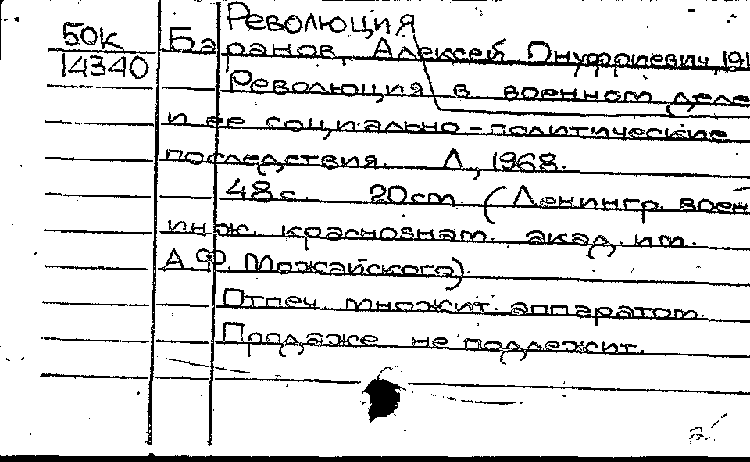 Революция
50к Баранов, Алексей Онуфриевич, 191
14340 Революция в военном деле
и ее социально-политические
последствия. Л., 1968.
48 с. 20cm (Ленингр. воен
инж. краснознам. акад. им.
А.Ф. Можайского)
Отпеч. множит. аппаратом.
Продаже не подлежит.